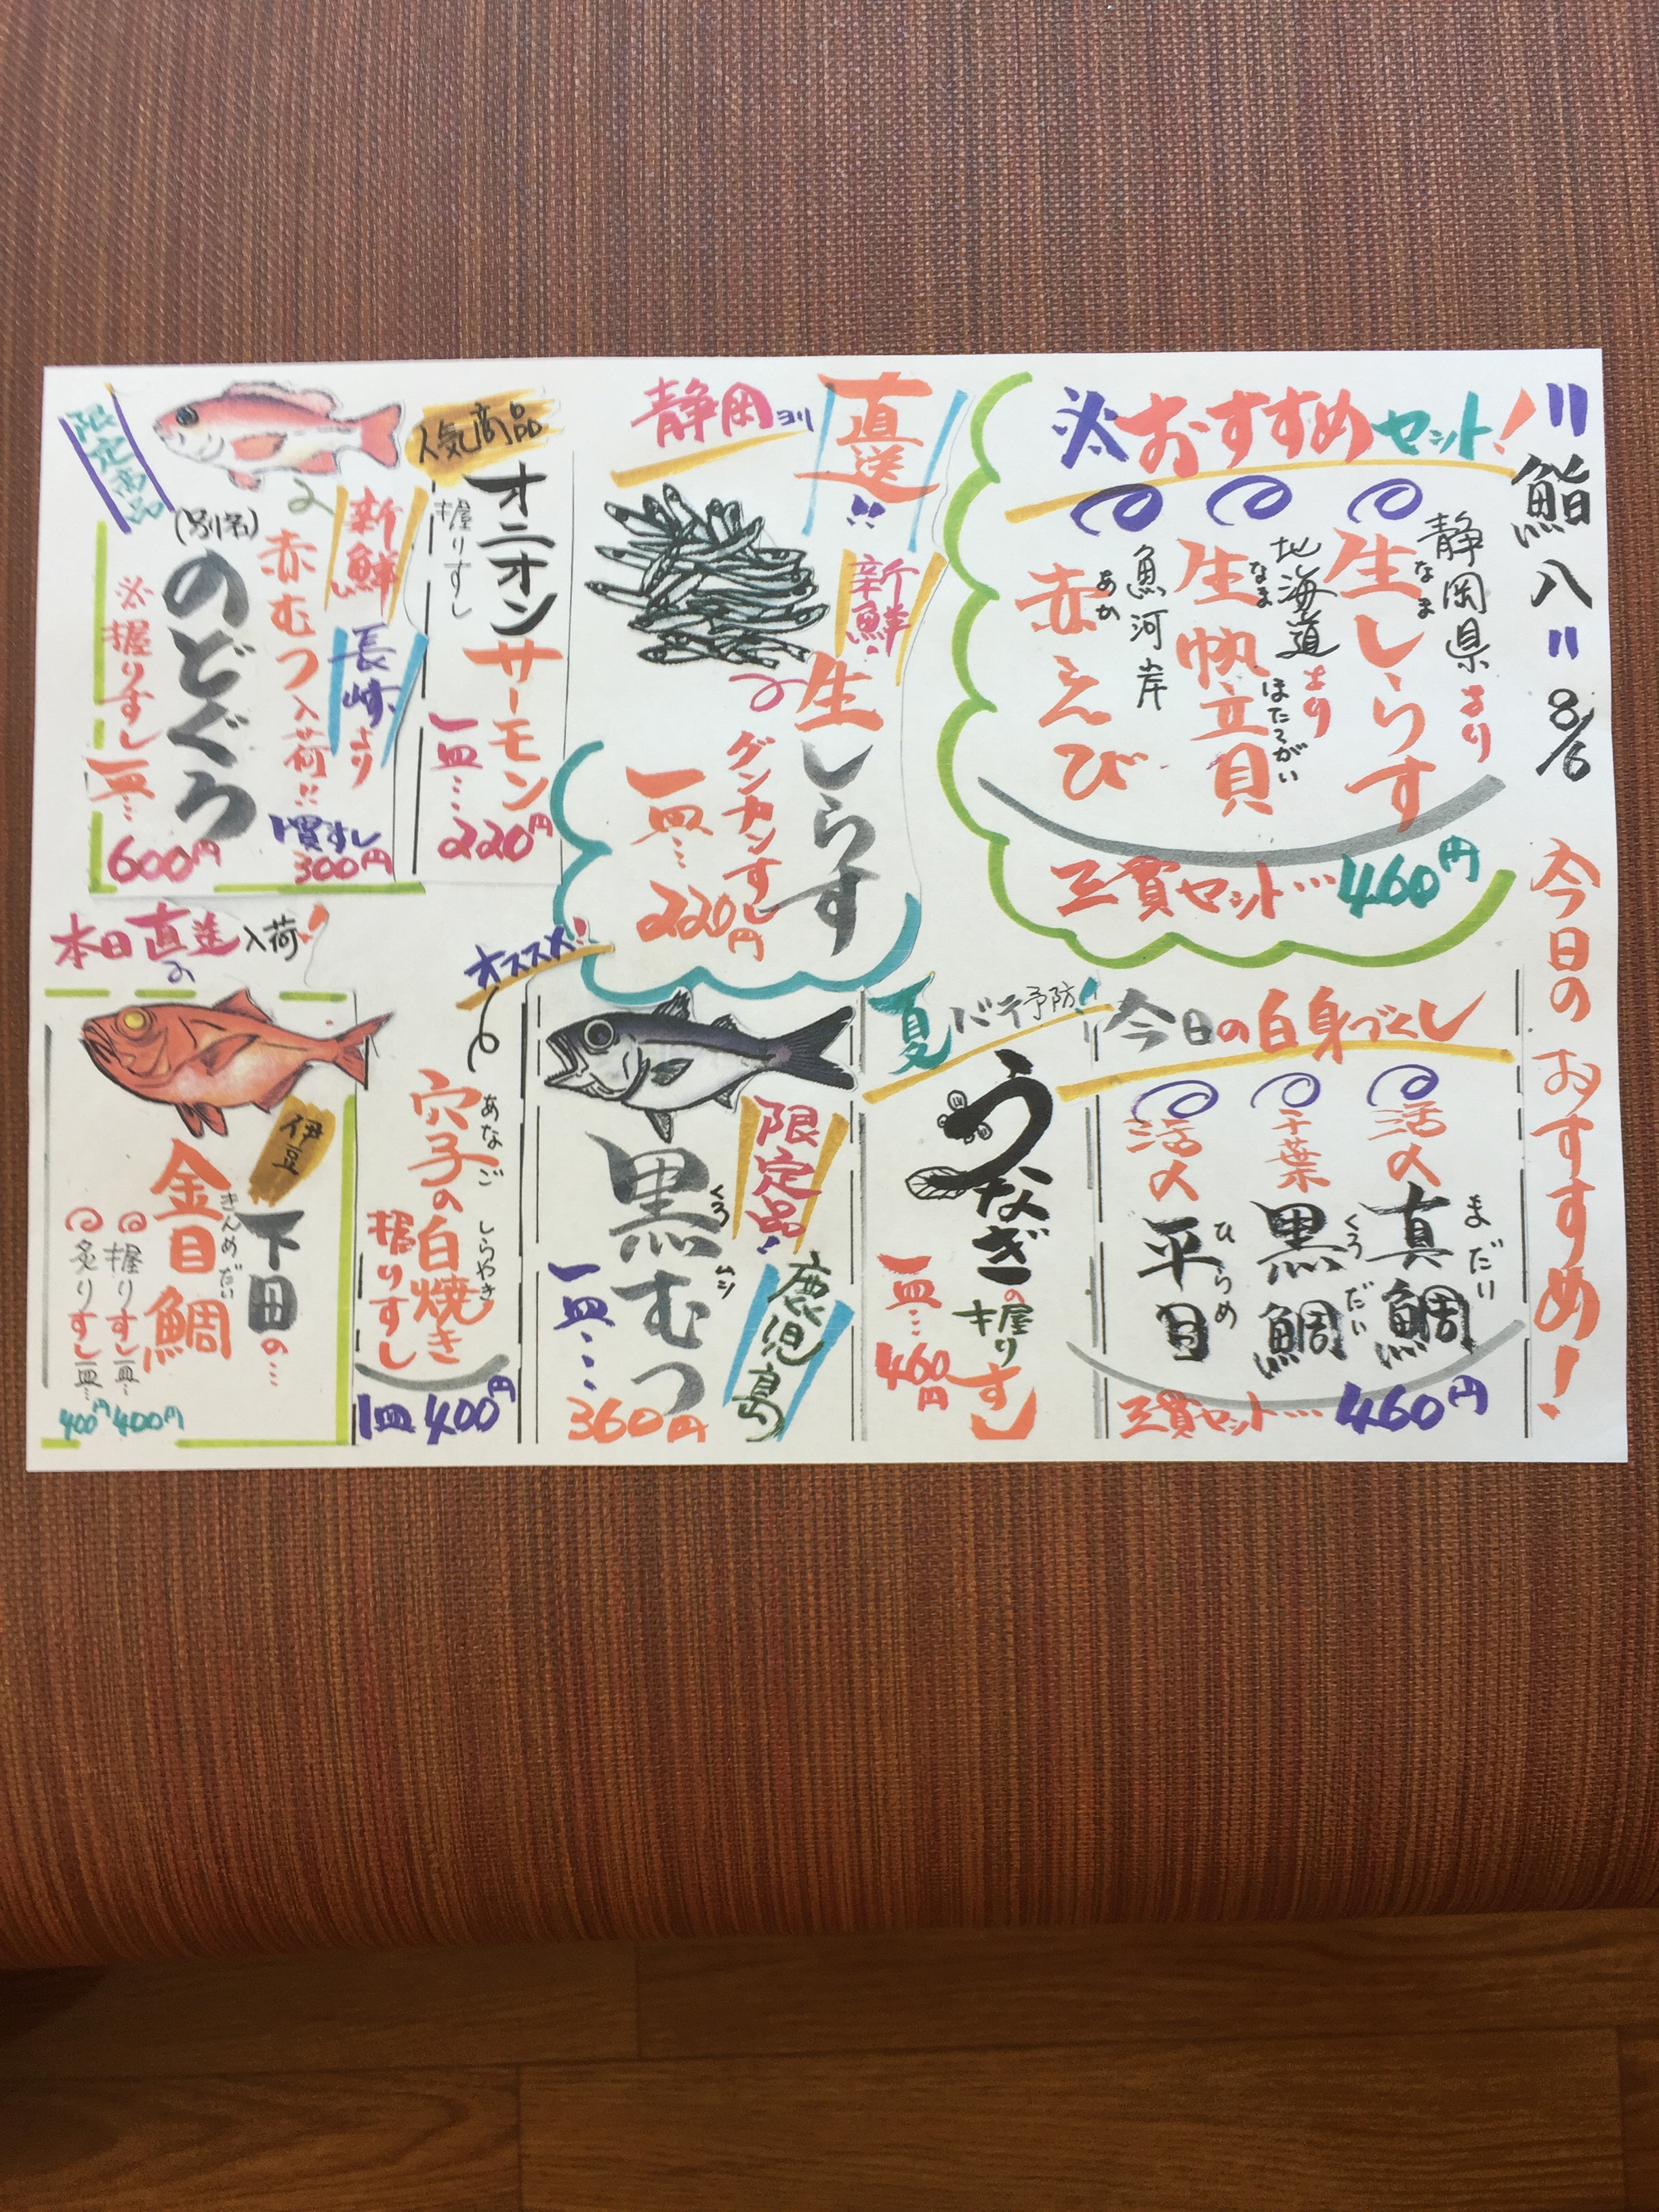 "鮨八" 8/6 今日のおすすめ!
※おすすめセット!
静岡県より
生しらす
なま
北海道より
生帆立貝
なま ほたてがい
魚河岸
赤えび
あか
三貫セット…460円
静岡ヨリ
直送!!
新鮮!
生しらす
グンカンすし
一皿…220円
人気商品
オニオンサーモン
握りすし
一皿…220円
限定商品
新鮮!
長崎より
赤むつ入荷!!
(別名)
のどぐろ
※握りすし一皿…
600円
一貫すし
300円
今日の白身づくし
活〆
真鯛
まだい
千葉
黒鯛
くろだい
活〆
平目
ひらめ
三貫セット…460円
夏バテ予防!
うなぎの握りすし
一皿…460円
限定品!
鹿児島
黒むつ
くろ ムツ
一皿…360円
オススメ!
穴子の白焼き
あなご しらやき
握りすし
1皿400円
本日直送入荷!
伊豆
下田の…
金目鯛
きんめだい
握りすし一皿…400円
炙りすし一皿…400円